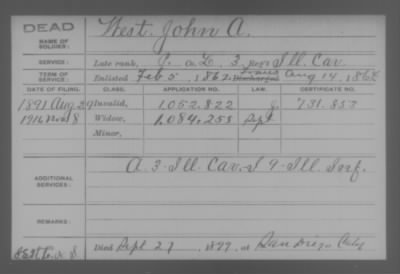 DEAD
NAME OF SOLDIER: West, John A.
SERVICE: Late rank, Co. L, 3 Reg't Ill. Cav.
TERM OF SERVICE: Enlisted Feb. 5, 1862, Discharged Aug 14, 186
DATE OF FILING. CLASS. APPLICATION NO. LAW. CERTIFICATE NO.
1891 Aug 29 Invalid, 1,052,822 731.853
1916 Nov 8 Widow, 1,084,255 Sept
Minor,
ADDITIONAL SERVICES: A. 3 Ill. Cav. I 9 Ill. Inf.
REMARKS:
Died Sept 27, 1899, at San Diego Calif